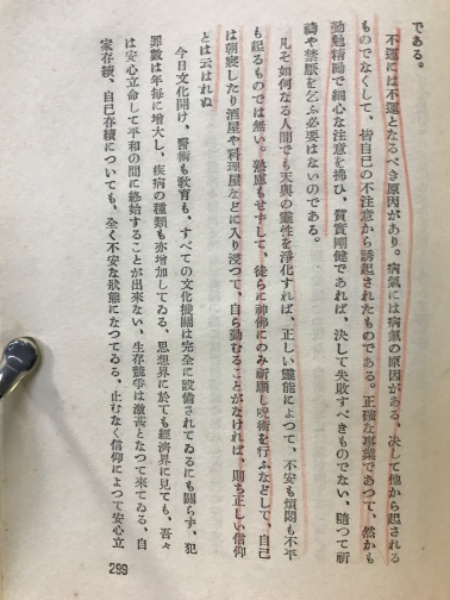 である。
不運には不運となるべき原因があり。病氣には病氣の原因がある、決して他から起される
ものでなくして、皆自己の不注意から誘起されたものである。正確な事業であつて、然かも
勤勉精勵で細心な注意を拂ひ、質實剛健であれば、決して失敗すべきものでない、隨つて祈
禱や禁厭を乞ふ必要はないのである。
凡そ如何なる人間でも天與の靈性を淨化すれば、正しい靈能によつて、不安も煩悶も不平
も起るものでは無い。熟慮もせずして、徒らに神佛にのみ祈願し呪術を行ふなどして、自己
は朝寢したり酒屋や料理屋などに入り浸つて、自ら勤むることがなければ、則ち正しい信仰
とは云はれぬ
今日文化開け、醫術も教育も、すべての文化機關は完全に設備されてゐるにも關らず、犯
罪數は年毎に增大し、疾病の種類も亦增加してゐる、思想界に於ても經濟界に見ても、吾々
は安心立命して平和の間に終始することが出來ない、生存競爭は激甚となつて來てゐる、自
家存續、自己存續についても、全く不安な狀態になつてゐる、止むなく信仰によつて安心立
299